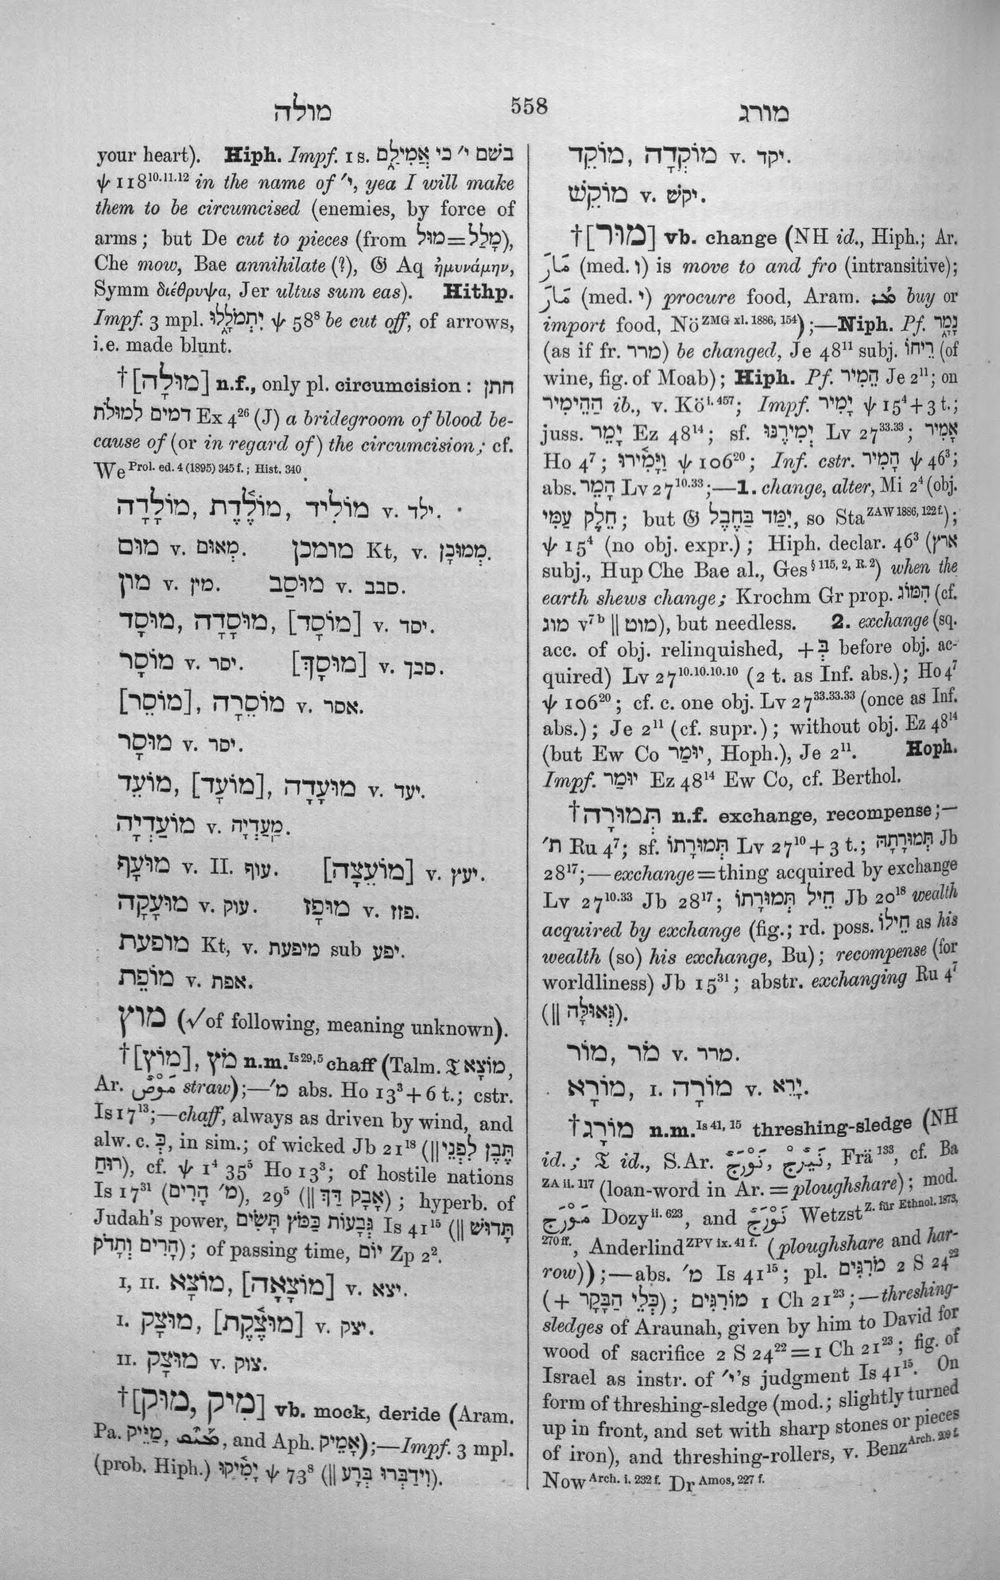 מולה
558
מורג
your heart). Hiph. Impf. 1 s. בשׁם י׳ כי אֲמִילַם
ψ 118¹⁰·¹¹·¹² in the name of י׳, yea I will make
them to be circumcised (enemies, by force of
arms; but De cut to pieces (from מָלַל=מוּל),
Che mow, Bae annihilate (?), 𝔊 Aq ἠμυνάμην,
Symm διέθρυψα, Jer ultus sum eas). Hithp.
Impf. 3 mpl. יִתְמֹלָֽלוּ ψ 58⁸ be cut off, of arrows,
i.e. made blunt.
†[מוּלָה] n.f., only pl. circumcision: חתן
דמים לַמּוּלֹת Ex 4²⁶ (J) a bridegroom of blood be-
cause of (or in regard of) the circumcision; cf.
We Prol. ed. 4 (1895) 345 f.; Hist. 340.
מוֹלִיד, מוֹלֶדֶת, מוֹלָדָה v. ילד.
מוּם v. מְאוּם. מומכן Kt, v. מְמוּכָן.
מון v. מין. מוּסַב v. סבב.
[מוֹסָד], מוּסָדָה, מוּסָד v. יסד.
מוֹסָר v. יסר. [מוּסָךְ] v. סכך.
[מוֹסֵר], מוֹסֵרָה v. אסר.
מוּסָר v. יסר.
מוֹעֵד, [מוֹעָד], מוּעָדָה v. יעד.
מוֹעַדְיָה v. מַֽעַדְיָה.
מוּעָף v. II. עוף. [מוֹעֵצָה] v. יעץ.
מוּעָקָה v. עוק. מוּפָז v. פזז.
מופעת Kt, v. מיפעת sub יפע.
מוֹפֵת v. אפת.
מוץ (√of following, meaning unknown).
†[מוֹץ], מֹץ n.m. Is 29, 5 chaff (Talm. 𝔗 מוֹצָא,
Ar. مَوْصٌ straw);—מ׳ abs. Ho 13³ + 6 t.; cstr.
Is 17¹³;—chaff, always as driven by wind, and
alw. c. כְּ, in sim.; of wicked Jb 21¹⁸ (‖תֶּבֶן לִפְנֵי
רוּחַ), cf. ψ 1⁴ 35⁵ Ho 13³; of hostile nations
Is 17³¹ (מ׳ הָרִים), 29⁵ (‖אָבָק דַּק); hyperb. of
Judah's power, גְּבָעוֹת כַּמֹּץ תָּשִׂים Is 41¹⁵ (‖תָּדוּשׁ
הָרִים וְתָדֹק); of passing time, יוֹם Zp 2².
I, II. מוֹצָא, [מוֹצָאָה] v. יצא.
I. מוּצָק, [מוּצֶקֶת] v. יצק.
II. מוּצָק v. צוק.
†[מִיק, מוּק] vb. mock, deride (Aram.
Pa. מַיֵּיק, , and Aph. אָמֵיק);—Impf. 3 mpl.
(prob. Hiph.) יָמִיקוּ ψ 73⁸ (‖וִידַבְּרוּ בְּרָע).
מוֹקֵד, מוֹקְדָה v. יקד.
מוֹקֵשׁ v. יקשׁ.
†[מוּר] vb. change (NH id., Hiph.; Ar.
مَارَ (med. ו) is move to and fro (intransitive);
مَارَ (med. י) procure food, Aram. buy or
import food, Nö ZMG xl. 1886, 154);—Niph. Pf. נָמָר
(as if fr. מרר) be changed, Je 48¹¹ subj. רֵיחוֹ (of
wine, fig. of Moab); Hiph. Pf. הֵמִיר Je 2¹¹; on
הַהֵימִיר ib., v. Kö i. 457; Impf. יָמִיר ψ 15⁴ + 3 t.;
juss. יָמֵר Ez 48¹⁴; sf. יְמִירֶנּוּ Lv 27³³·³³; אָמִיר
Ho 4⁷; וַיָּמִירוּ ψ 106²⁰; Inf. cstr. הָמִיר ψ 46³;
abs. הָמֵר Lv 27¹⁰·³³;—1. change, alter, Mi 2⁴ (obj.
חֵלֶק עַמִּי; but 𝔊 יִמַּד בַּחֶבֶל, so Sta ZAW 1886, 122 f.);
ψ 15⁴ (no obj. expr.); Hiph. declar. 46³ (ארץ
subj., Hup Che Bae al., Ges § 115, 2, R. 2) when the
earth shews change; Krochm Gr prop. הִמּוֹג (cf.
מוג v⁷ᵇ ‖ מוט), but needless. 2. exchange (sq.
acc. of obj. relinquished, + בְּ before obj. ac-
quired) Lv 27¹⁰·¹⁰·¹⁰·¹⁰ (2 t. as Inf. abs.); Ho 4⁷
ψ 106²⁰; cf. c. one obj. Lv 27³³·³³·³³ (once as Inf.
abs.); Je 2¹¹ (cf. supr.); without obj. Ez 48¹⁴
(but Ew Co יוּמַר, Hoph.), Je 2¹¹. Hoph.
Impf. יוּמַר Ez 48¹⁴ Ew Co, cf. Berthol.
†תְּמוּרָה n.f. exchange, recompense;—
ת׳ Ru 4⁷; sf. תְּמוּרָתוֹ Lv 27¹⁰ + 3 t.; תְּמוּרָתָהּ Jb
28¹⁷;—exchange=thing acquired by exchange
Lv 27¹⁰·³³ Jb 28¹⁷; חֵיל תְּמוּרָתוֹ Jb 20¹⁸ wealth
acquired by exchange (fig.; rd. poss. חֵילוֹ as his
wealth (so) his exchange, Bu); recompense (for
worldliness) Jb 15³¹; abstr. exchanging Ru 4⁷
(‖ גְּאוּלָּה).
מֹר, מוֹר v. מרר.
מוֹרָא, I. מוֹרָה v. יָרֵא.
†מוֹרָג n.m. Is 41, 15 threshing-sledge (NH
id.; 𝔗 id., S.Ar. نَوْرَج, نَيْرَج, Frä 133, cf. Ba
ZA ii. 117 (loan-word in Ar. = ploughshare); mod.
مَوْرَج Dozy ii. 623, and نَوْرَج Wetzst Z. für Ethnol. 1873,
270 ff., Anderlind ZPV ix. 41 f. (ploughshare and har-
row));—abs. מ׳ Is 41¹⁵; pl. מֹרִגִּים 2 S 24²²
(+ כְּלֵי הַבָּקָר); מוֹרִגִּים 1 Ch 21²³;—threshing-
sledges of Araunah, given by him to David for
wood of sacrifice 2 S 24²² = 1 Ch 21²³; fig. of
Israel as instr. of י׳'s judgment Is 41¹⁵. On
form of threshing-sledge (mod.; slightly turned
up in front, and set with sharp stones or pieces
of iron), and threshing-rollers, v. Benz Arch. 209 f.
Now Arch. i. 232 f. Dr Amos, 227 f.